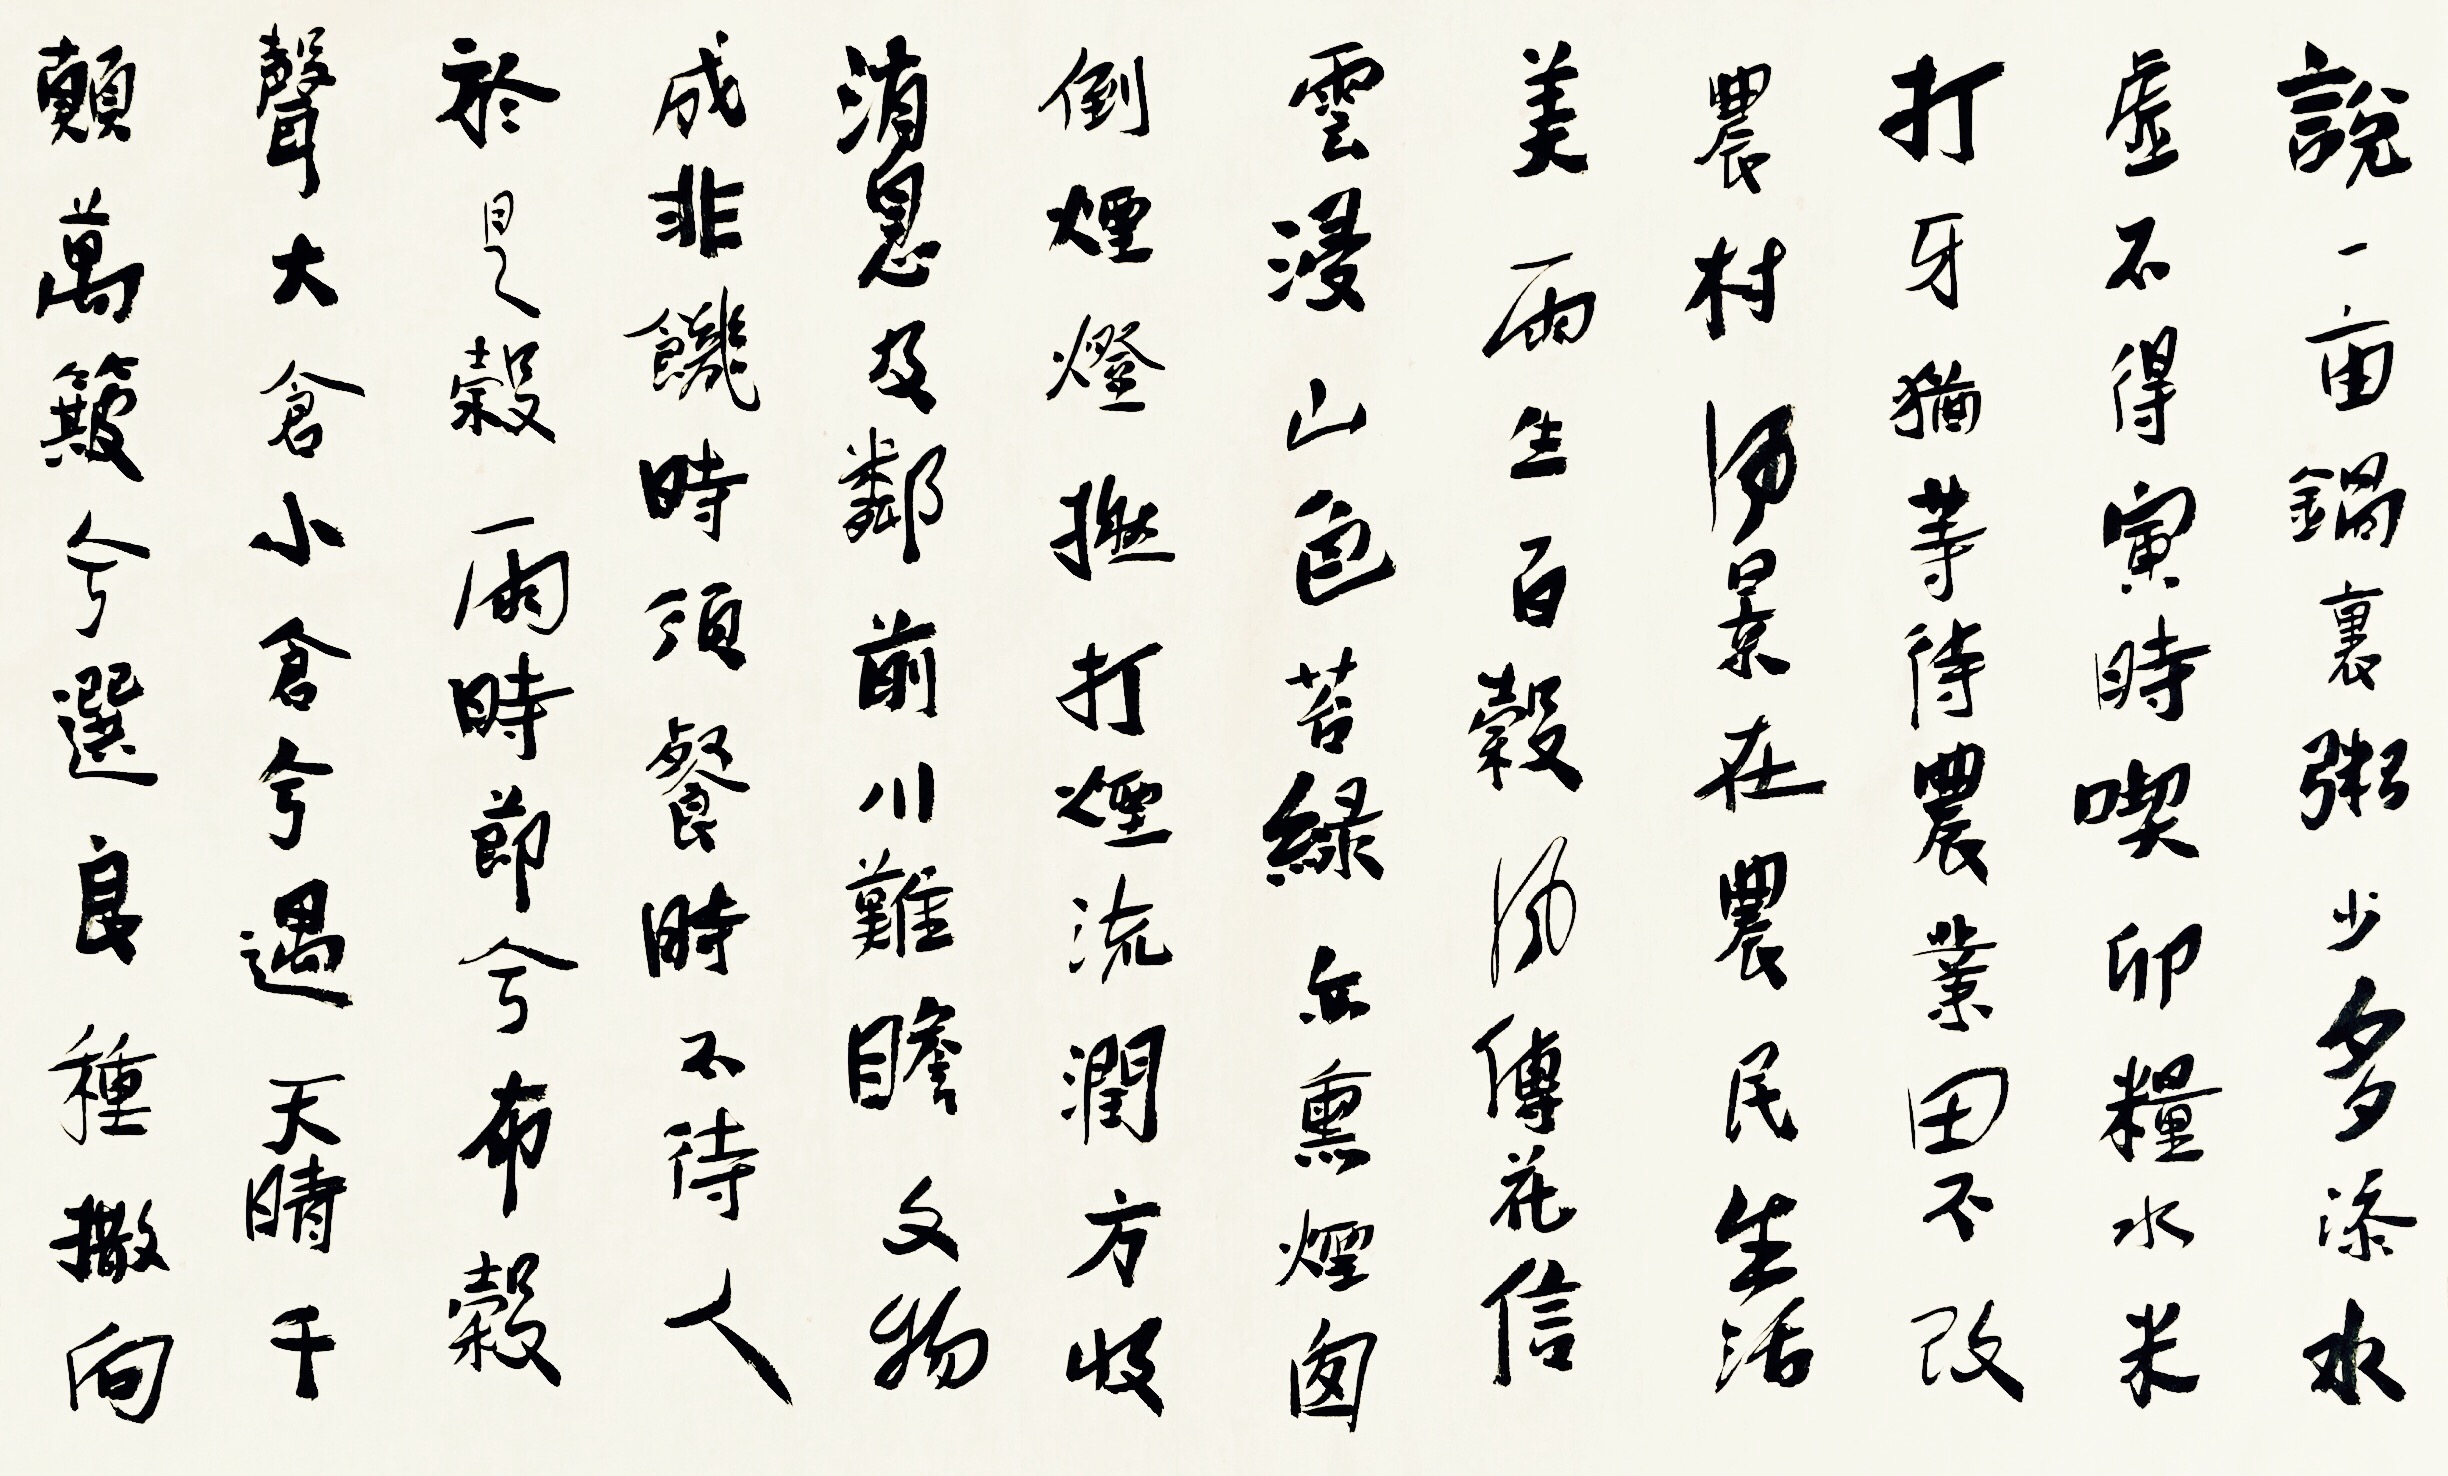 說一亩鍋裏粥少多添水
虛不得寅時喫卯糧水米
打牙猶等待農業田不改
農村風景在農民生活
美雨生百穀風傳花信
雲浸山色苔綠丘熏煙囱
倒煙燈撚打煙流潤方收
消息及鄰前川難瞻文物
成非饑時須餐時不待人
於是穀雨時節兮布穀
聲大倉小倉兮遇天晴千
顆萬簸兮選良種撒向